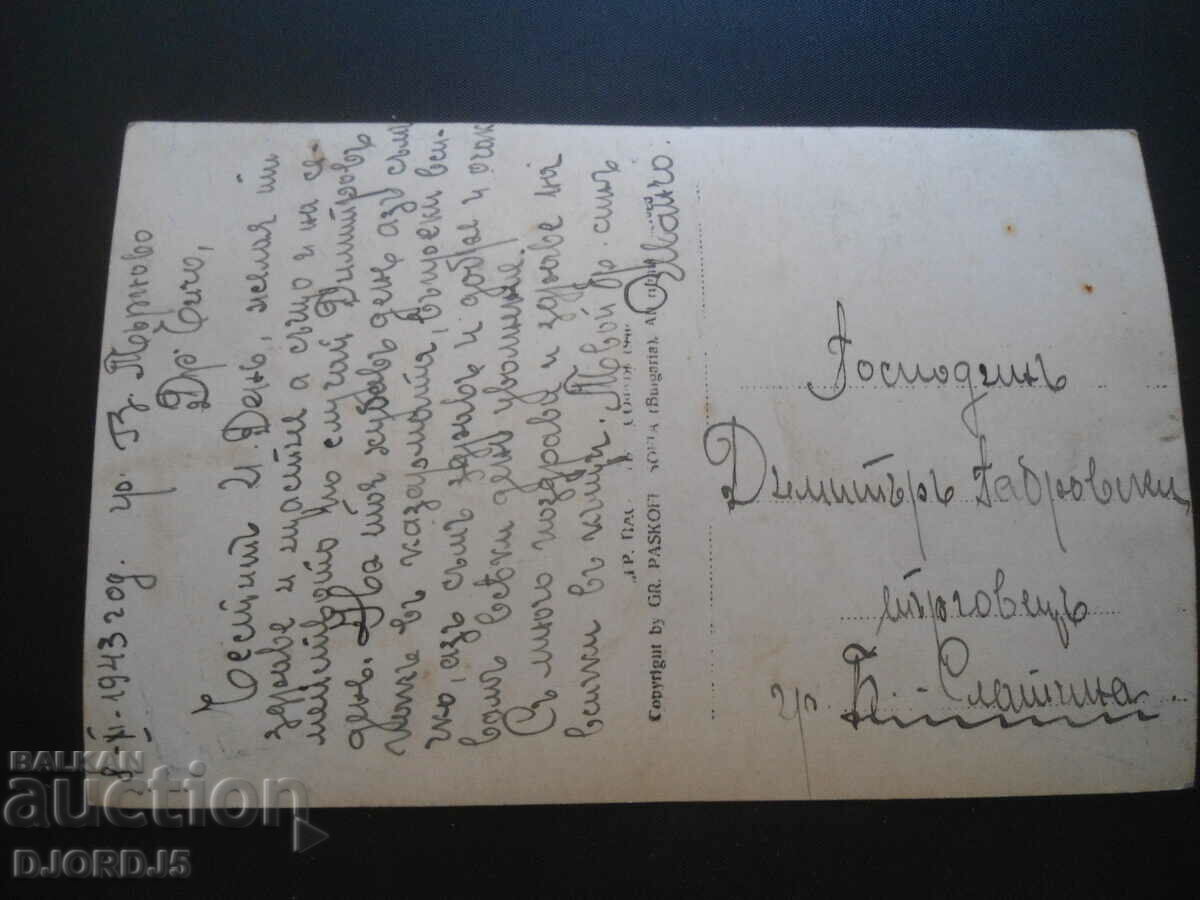 8-XI-1943 год. гр. В. Търново
Др. Чичо,
Честит И. День, желая ти
здраве и щастие а също и на се-
мейството по случай Димитровъ
день. На тоя хубавъ день азъ съм
пакъ в казармата, въпреки вси-
чко, азъ съмъ здравъ и добре и очак
вамъ всеки ден уволнение.
Съ много поздрави и здраве на
всички въ къщи. Твой бр. синъ
Иванчо.
Copyright by GR. PASKOFF SOFIA (Bulgaria).
Господинъ
Димитъръ Габровски
търговецъ
гр. Б. Слатина
BALKAN
auction
DJORDJ5